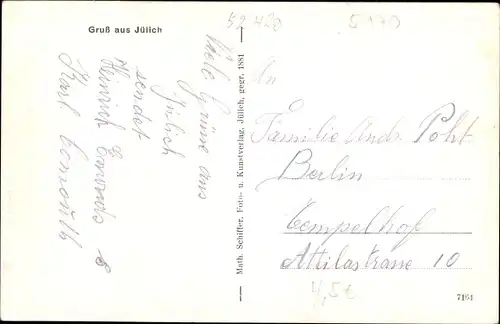 Gruß aus Jülich
52 428
5170
Viele Grüsse aus
Jülich
sendet
Heinrich
Karl
Math. Schiffer, Foto- u. Kunstverlag, Jülich, gegr. 1881
An
Familie Andr. Poht
Berlin
Tempelhof
Attilastrasse 10
4,5€
7161